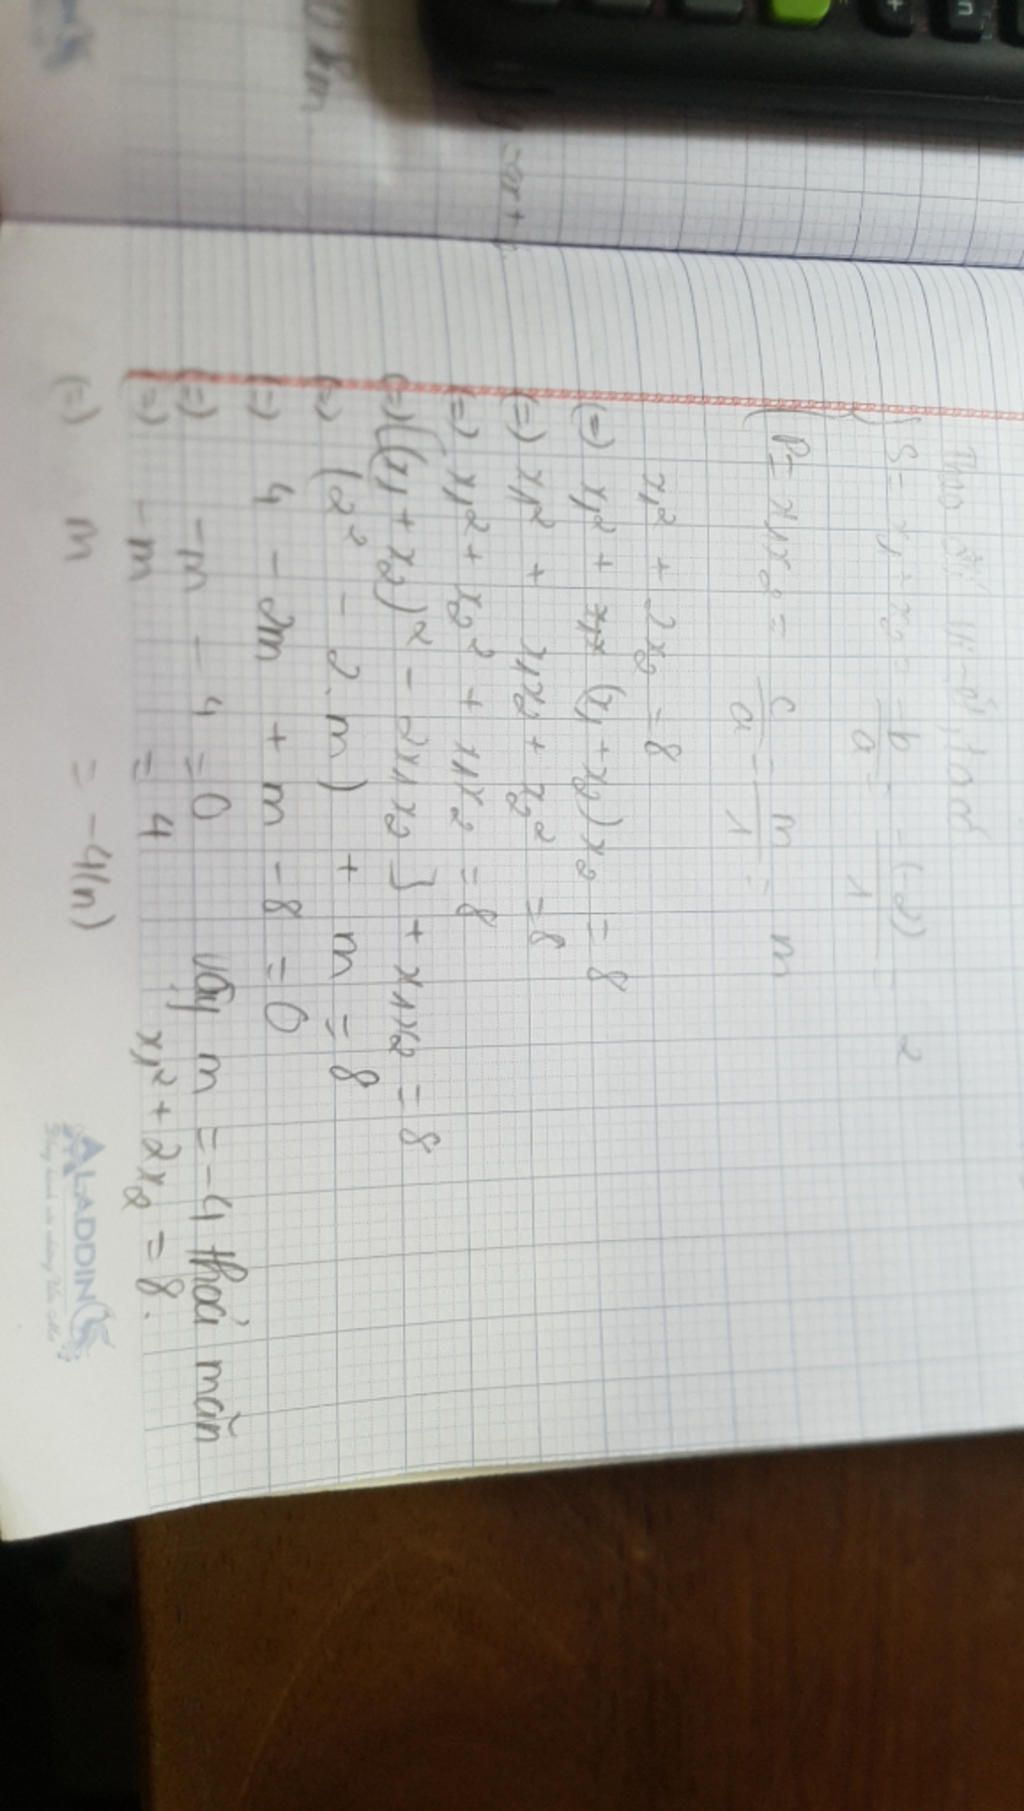 Theo hệ thức Vi-ét, ta có
S = x₁ + x₂ = -b/a = -(-2)/1 = 2
P = x₁x₂ = c/a = m/1 = m
x₁² + 2x₂ = 8
(=) x₁² + (x₁ + x₂)x₂ = 8
(=) x₁² + x₁x₂ + x₂² = 8
(=) x₁² + x₂² + x₁x₂ = 8
(=) [(x₁ + x₂)² - 2x₁x₂] + x₁x₂ = 8
(=) (2² - 2.m) + m = 8
(=) 4 - 2m + m - 8 = 0
(=) -m - 4 = 0
(=) -m = 4
(=) m = -4(n)
Vậy m = -4 thoả mãn
x₁² + 2x₂ = 8.
ALADDIN